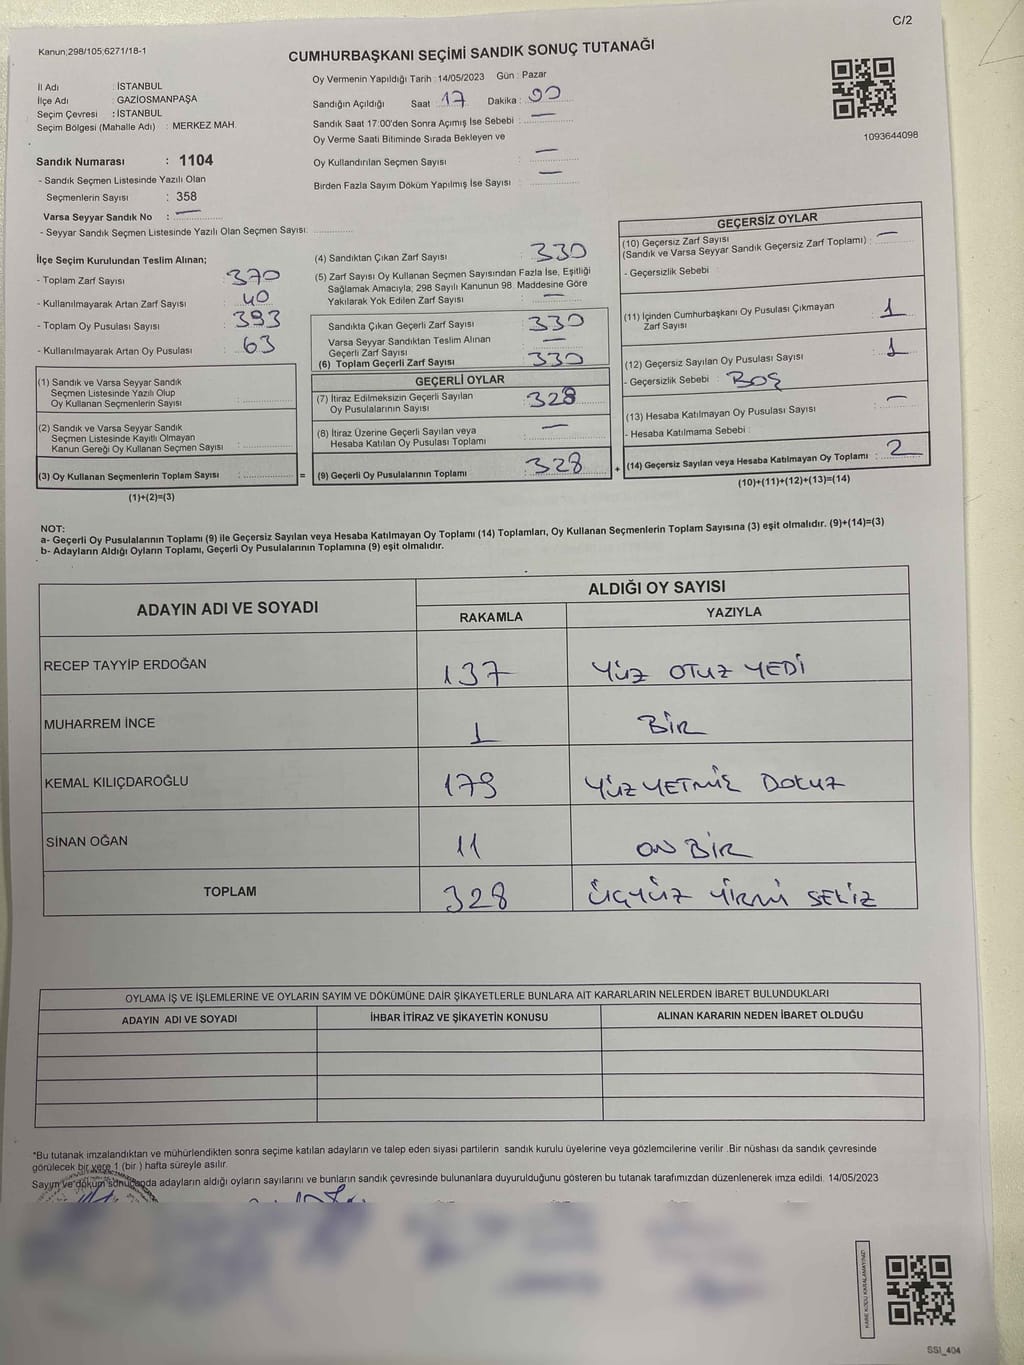 C/2
Kanun;298/105;6271/18-1
CUMHURBAŞKANI SEÇİMİ SANDIK SONUÇ TUTANAĞI
İl Adı : İSTANBUL
İlçe Adı : GAZİOSMANPAŞA
Seçim Çevresi : İSTANBUL
Seçim Bölgesi (Mahalle Adı) : MERKEZ MAH.
Oy Vermenin Yapıldığı Tarih : 14/05/2023 Gün : Pazar
Sandığın Açıldığı Saat 17 Dakika : 00
Sandık Saat 17:00'den Sonra Açımış İse Sebebi : —
Oy Verme Saati Bitiminde Sırada Bekleyen ve
Oy Kullandırılan Seçmen Sayısı : —
Birden Fazla Sayım Döküm Yapılmış İse Sayısı : —
1093644098
Sandık Numarası : 1104
- Sandık Seçmen Listesinde Yazılı Olan
Seçmenlerin Sayısı : 358
Varsa Seyyar Sandık No : —
- Seyyar Sandık Seçmen Listesinde Yazılı Olan Seçmen Sayısı:
İlçe Seçim Kurulundan Teslim Alınan;
- Toplam Zarf Sayısı : 370
- Kullanılmayarak Artan Zarf Sayısı : 40
- Toplam Oy Pusulası Sayısı : 393
- Kullanılmayarak Artan Oy Pusulası : 63
(1) Sandık ve Varsa Seyyar Sandık
Seçmen Listesinde Yazılı Olup
Oy Kullanan Seçmenlerin Sayısı :
(2) Sandık ve Varsa Seyyar Sandık
Seçmen Listesinde Kayıtlı Olmayan
Kanun Gereği Oy Kullanan Seçmen Sayısı :
(3) Oy Kullanan Seçmenlerin Toplam Sayısı : =
(1)+(2)=(3)
(4) Sandıktan Çıkan Zarf Sayısı : 330
(5) Zarf Sayısı Oy Kullanan Seçmen Sayısından Fazla İse, Eşitliği
Sağlamak Amacıyla; 298 Sayılı Kanunun 98. Maddesine Göre
Yakılarak Yok Edilen Zarf Sayısı : —
Sandıkta Çıkan Geçerli Zarf Sayısı : 330
Varsa Seyyar Sandıktan Teslim Alınan
Geçerli Zarf Sayısı : —
(6) Toplam Geçerli Zarf Sayısı : 330
GEÇERLİ OYLAR
(7) İtiraz Edilmeksizin Geçerli Sayılan
Oy Pusulalarının Sayısı : 328
(8) İtiraz Üzerine Geçerli Sayılan veya
Hesaba Katılan Oy Pusulası Toplamı : —
(9) Geçerli Oy Pusulalarının Toplamı : 328 +
GEÇERSİZ OYLAR
(10) Geçersiz Zarf Sayısı
(Sandık ve Varsa Seyyar Sandık Geçersiz Zarf Toplamı) : —
- Geçersizlik Sebebi :
(11) İçinden Cumhurbaşkanı Oy Pusulası Çıkmayan
Zarf Sayısı : 1
(12) Geçersiz Sayılan Oy Pusulası Sayısı : 1
- Geçersizlik Sebebi : BOŞ
(13) Hesaba Katılmayan Oy Pusulası Sayısı : —
- Hesaba Katılmama Sebebi :
(14) Geçersiz Sayılan veya Hesaba Katılmayan Oy Toplamı : 2
(10)+(11)+(12)+(13)=(14)
NOT:
a- Geçerli Oy Pusulalarının Toplamı (9) ile Geçersiz Sayılan veya Hesaba Katılmayan Oy Toplamı (14) Toplamları, Oy Kullanan Seçmenlerin Toplam Sayısına (3) eşit olmalıdır. (9)+(14)=(3)
b- Adayların Aldığı Oyların Toplamı, Geçerli Oy Pusulalarının Toplamına (9) eşit olmalıdır.
ADAYIN ADI VE SOYADI
ALDIĞI OY SAYISI
RAKAMLA YAZIYLA
RECEP TAYYİP ERDOĞAN 137 YÜZ OTUZ YEDİ
MUHARREM İNCE 1 BİR
KEMAL KILIÇDAROĞLU 179 YÜZ YETMİŞ DOKUZ
SİNAN OĞAN 11 ON BİR
TOPLAM 328 ÜÇYÜZ YİRMİ SEKİZ
OYLAMA İŞ VE İŞLEMLERİNE VE OYLARIN SAYIM VE DÖKÜMÜNE DAİR ŞİKAYETLERLE BUNLARA AİT KARARLARIN NELERDEN İBARET BULUNDUKLARI
ADAYIN ADI VE SOYADI İHBAR İTİRAZ VE ŞİKAYETİN KONUSU ALINAN KARARIN NEDEN İBARET OLDUĞU
*Bu tutanak imzalandıktan ve mühürlendikten sonra seçime katılan adayların ve talep eden siyasi partilerin sandık kurulu üyelerine veya gözlemcilerine verilir .Bir nüshası da sandık çevresinde
görülecek bir yere 1 (bir ) hafta süreyle asılır.
Sayım ve döküm sonucunda adayların aldığı oyların sayılarını ve bunların sandık çevresinde bulunanlara duyurulduğunu gösteren bu tutanak tarafımızdan düzenlenerek imza edildi. 14/05/2023
KARE KODU KARALAMAYINIZ!
SSI_404